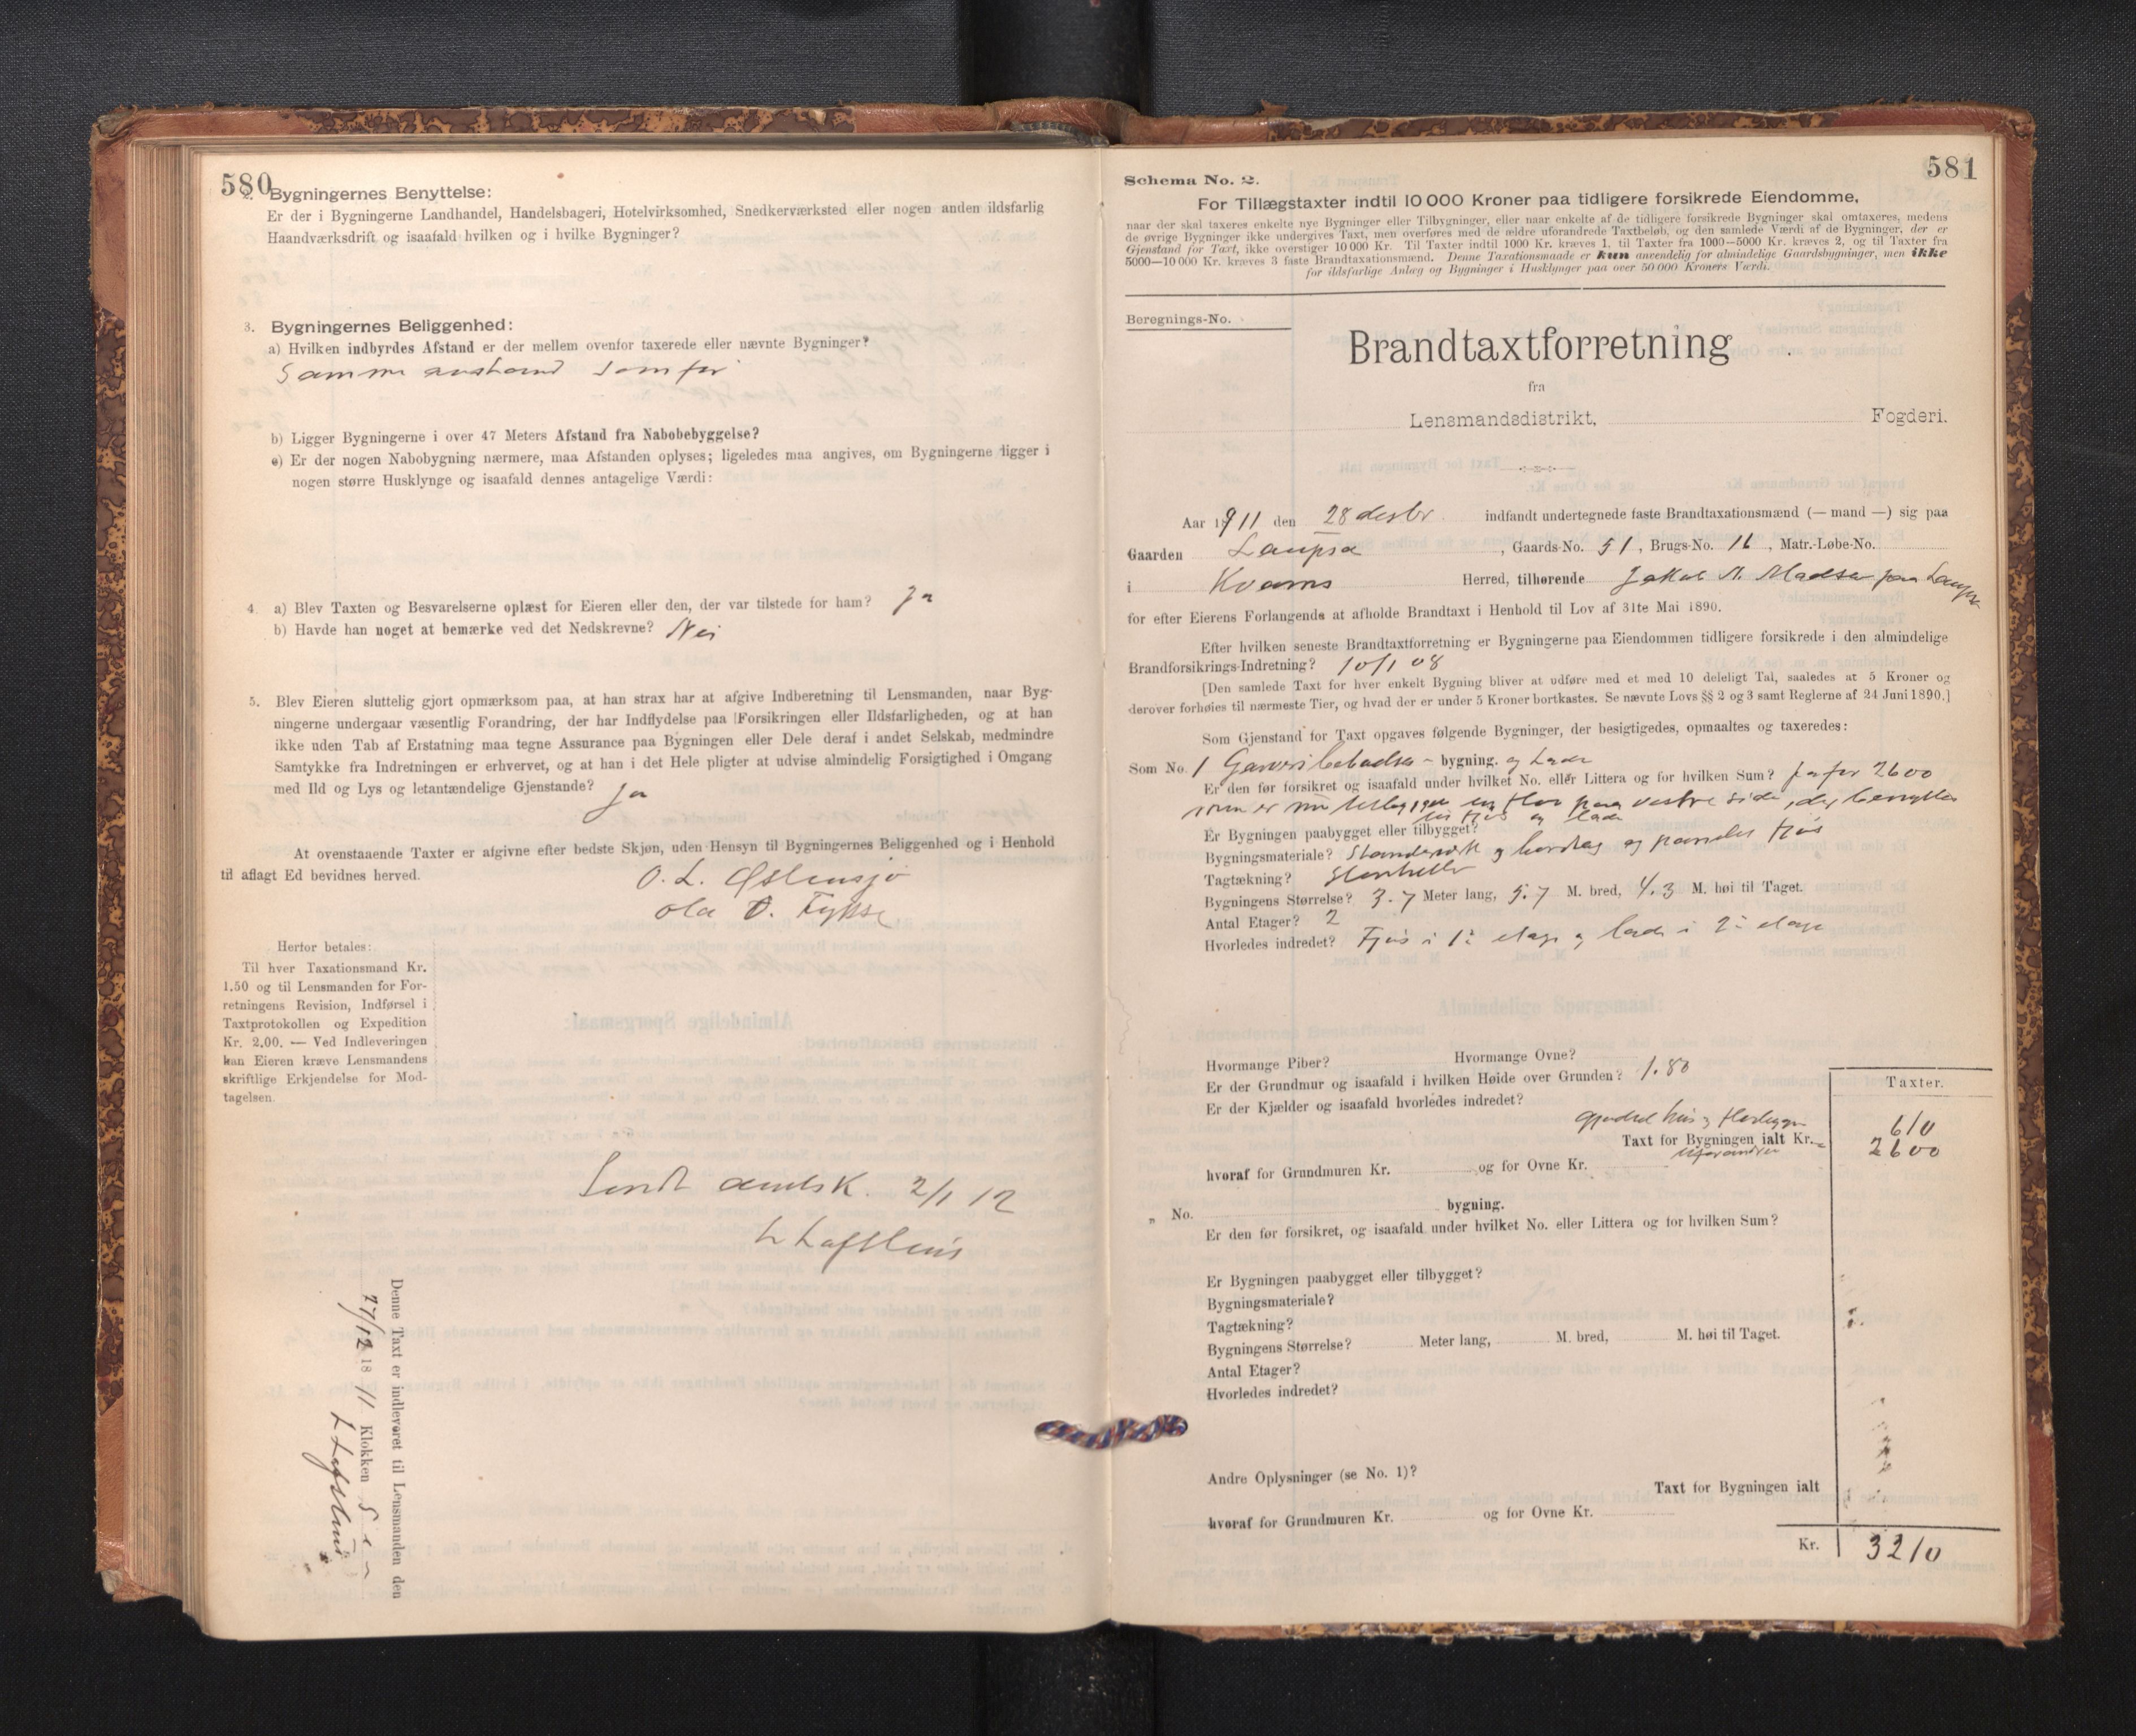 580
2. Bygningernes Benyttelse:
Er der i Bygningerne Landhandel, Handelsbageri, Hotelvirksomhed, Snedkerværksted eller nogen anden ildsfarlig
Haandværksdrift og isaafald hvilken og i hvilke Bygninger?
3. Bygningernes Beliggenhed:
a) Hvilken indbyrdes Afstand er der mellem ovenfor taxerede eller nævnte Bygninger?
Samme avstand som før
b) Ligger Bygningerne i over 47 Meters Afstand fra Nabobebyggelse?
c) Er der nogen Nabobygning nærmere, maa Afstanden oplyses; ligeledes maa angives, om Bygningerne ligger i
nogen større Husklynge og isaafald dennes antagelige Værdi:
4. a) Blev Taxten og Besvarelserne oplæst for Eieren eller den, der var tilstede for ham? Ja
b) Havde han noget at bemærke ved det Nedskrevne? Nei
5. Blev Eieren sluttelig gjort opmærksom paa, at han strax har at afgive Indberetning til Lensmanden, naar Byg-
ningerne undergaar væsentlig Forandring, der har Indflydelse paa Forsikringen eller Ildsfarligheden, og at han
ikke uden Tab af Erstatning maa tegne Assurance paa Bygningen eller Dele deraf i andet Selskab, medmindre
Samtykke fra Indretningen er erhvervet, og at han i det Hele pligter at udvise almindelig Forsigtighed i Omgang
med Ild og Lys og letantændelige Gjenstande? Ja
At ovenstaaende Taxter er afgivne efter bedste Skjøn, uden Hensyn til Bygningernes Beliggenhed og i Henhold
til aflagt Ed bevidnes herved.
O. L. Østensjø
Ola O. Fykse
Herfor betales:
Til hver Taxationsmand Kr.
1.50 og til Lensmanden for For-
retningens Revision, Indførsel i
Taxtprotokollen og Expedition
Kr. 2.00. — Ved Indleveringen
kan Eieren kræve Lensmandens
skriftlige Erkjendelse for Mod-
tagelsen.
Sendt amtsk. 2/1 12
L Lofthus
Denne Taxt er indleveret til Lensmanden den
27/12 18 11 Klokken 5
L Lofthus
581
Schema No. 2.
For Tillægstaxter indtil 10 000 Kroner paa tidligere forsikrede Eiendomme,
naar der skal taxeres enkelte nye Bygninger eller Tilbygninger, eller naar enkelte af de tidligere forsikrede Bygninger skal omtaxeres, medens
de øvrige Bygninger ikke undergives Taxt, men overføres med de ældre uforandrede Taxtbeløb, og den samlede Værdi af de Bygninger, der er
Gjenstand for Taxt, ikke overstiger 10 000 Kr. Til Taxter indtil 1000 Kr. kræves 1, til Taxter fra 1000—5000 Kr. kræves 2, og til Taxter fra
5000—10 000 Kr. kræves 3 faste Brandtaxationsmænd. Denne Taxationsmaade er kun anvendelig for almindelige Gaardsbygninger, men ikke
for ildsfarlige Anlæg og Bygninger i Husklynger paa over 50 000 Kroners Værdi.
Beregnings-No.
Brandtaxtforretning
fra
Lensmandsdistrikt, Fogderi.
Aar 1911 den 28 desbr. indfandt undertegnede faste Brandtaxationsmænd (— mand —) sig paa
Gaarden Laupsa, Gaards-No. 51, Brugs-No. 16, Matr.-Løbe-No.
i Kvams Herred, tilhørende Jakob N. Madsen paa Laupsa
for efter Eierens Forlangende at afholde Brandtaxt i Henhold til Lov af 31te Mai 1890.
Efter hvilken seneste Brandtaxtforretning er Bygningerne paa Eiendommen tidligere forsikrede i den almindelige
Brandforsikrings-Indretning? 10/1 08
[Den samlede Taxt for hver enkelt Bygning bliver at udføre med et med 10 deleligt Tal, saaledes at 5 Kroner og
derover forhøies til nærmeste Tier, og hvad der er under 5 Kroner bortkastes. Se nævnte Lovs §§ 2 og 3 samt Reglerne af 24 Juni 1890.]
Som Gjenstand for Taxt opgaves følgende Bygninger, der besigtigedes, opmaaltes og taxeredes:
Som No. 1 - bygning. og Lade
Er den før forsikret og isaafald under hvilket No. eller Littera og for hvilken Sum? Ja for 2600
som er nu paa vestre side, der benyttes
til Fjøs og lade
Er Bygningen paabygget eller tilbygget?
Bygningsmateriale? og bordtag og panelet Fjøs
Tagtækning? Stenheller
Bygningens Størrelse? 3.7 Meter lang, 5.7 M. bred, 4.3 M. høi til Taget.
Antal Etager? 2
Hvorledes indredet? Fjøs i 1ᵉ etage og lade i 2ᵉ etage
Hvormange Piber? Hvormange Ovne?
Er der Grundmur og isaafald i hvilken Høide over Grunden? 1.80
Er der Kjælder og isaafald hvorledes indredet?
Taxter.
Taxt for Bygningen ialt Kr. 610
uforandret 2600
hvoraf for Grundmuren Kr. og for Ovne Kr.
„ No. bygning.
Er den før forsikret, og isaafald under hvilket No. eller Littera og for hvilken Sum?
Er Bygningen paabygget eller tilbygget?
Bygningsmateriale?
Tagtækning?
Bygningens Størrelse? Meter lang, M. bred, M. høi til Taget.
Antal Etager?
Hvorledes indredet?
Andre Oplysninger (se No. 1)?
Taxt for Bygningen ialt
hvoraf for Grundmuren Kr. og for Ovne Kr.
Kr. 3210